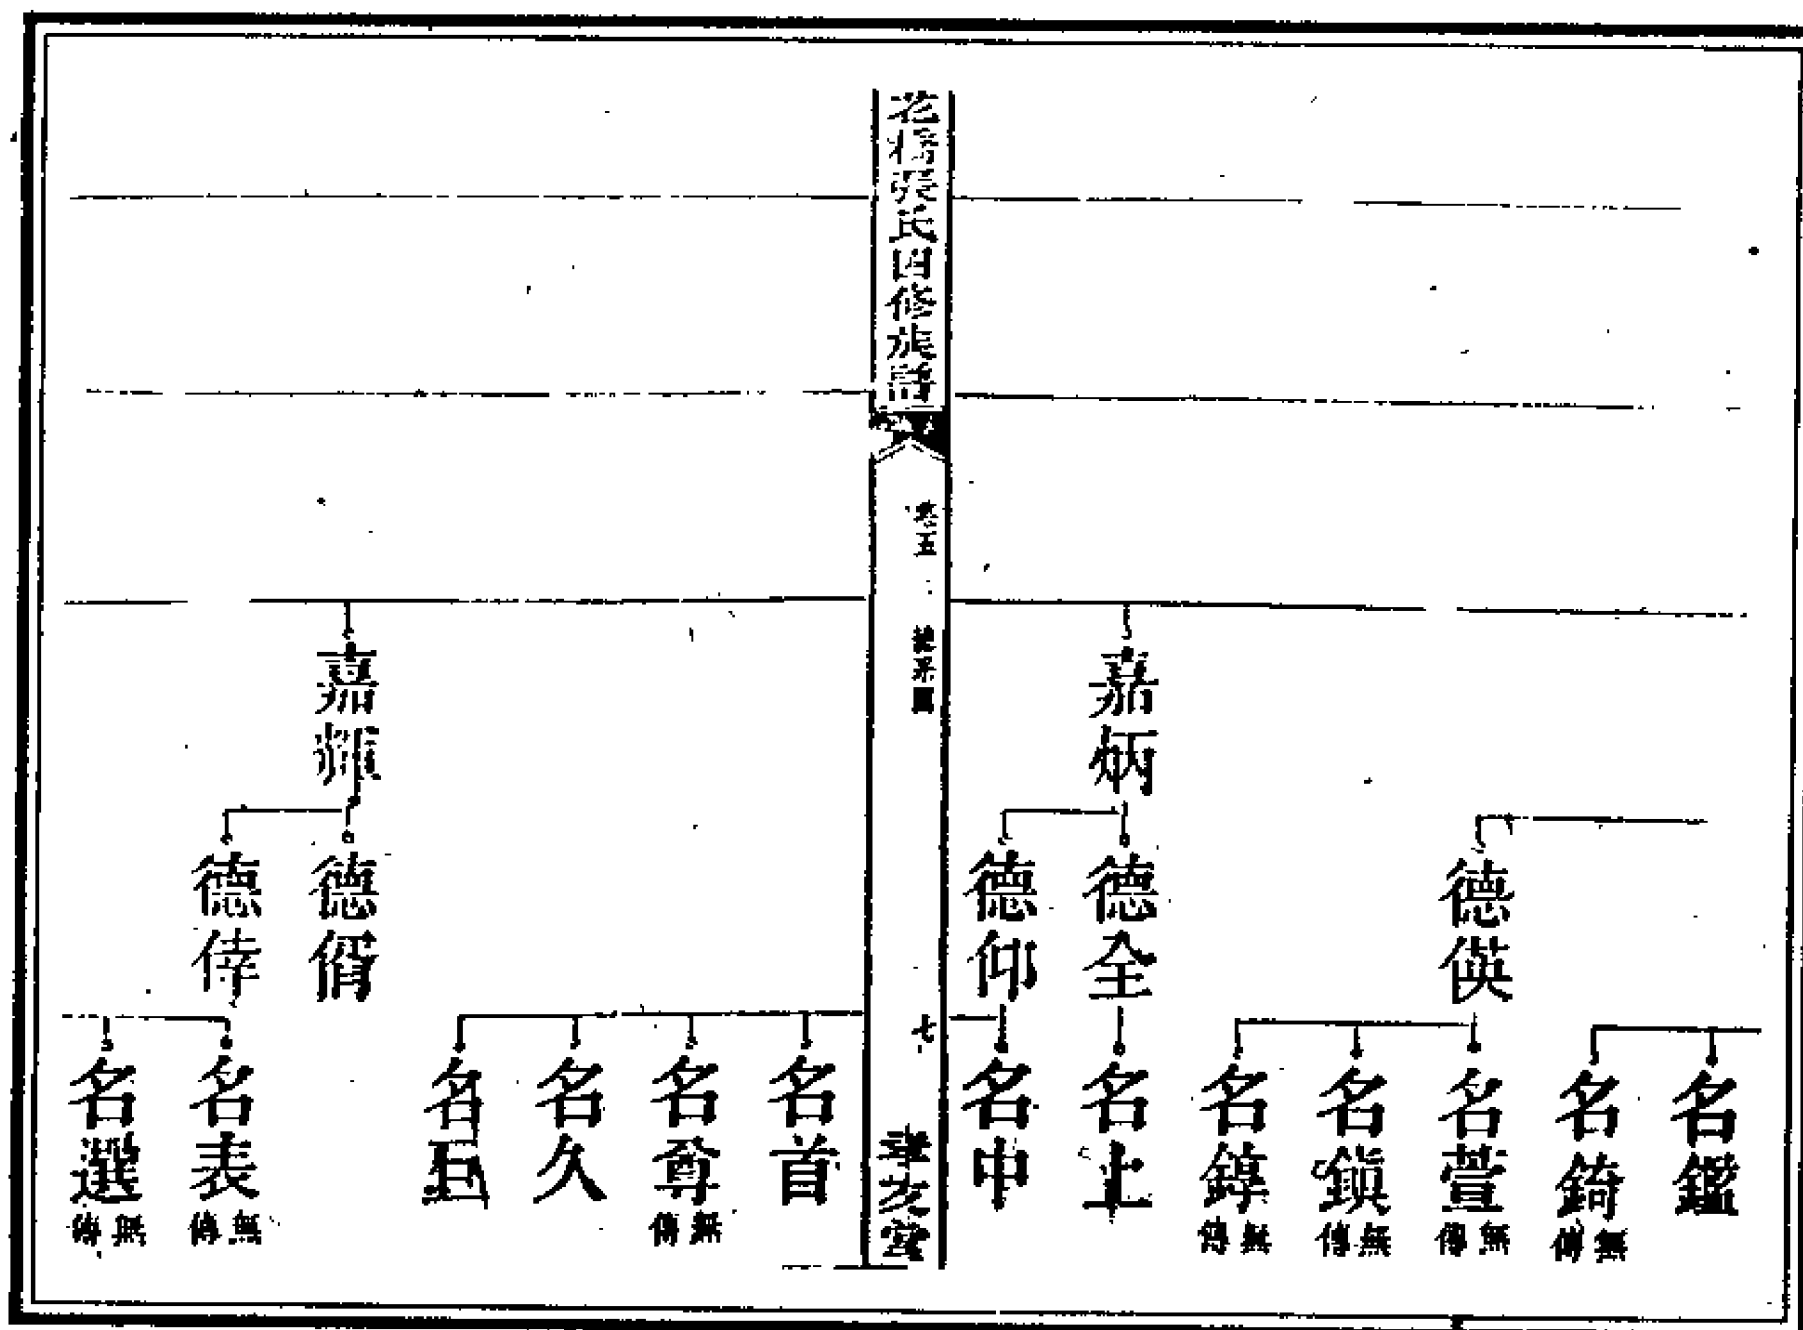 名鑑
名錡
無傳
德偀
名萱
無傳
名鎮
無傳
名錞
無傳
嘉炳
德全
名上
德仰
名申
花橋張氏四修族譜
卷五
總系圖
七
孝友堂
名首
名尊
無傳
名久
嘉輝
德偦
德倖
名表
無傳
名選
無傳